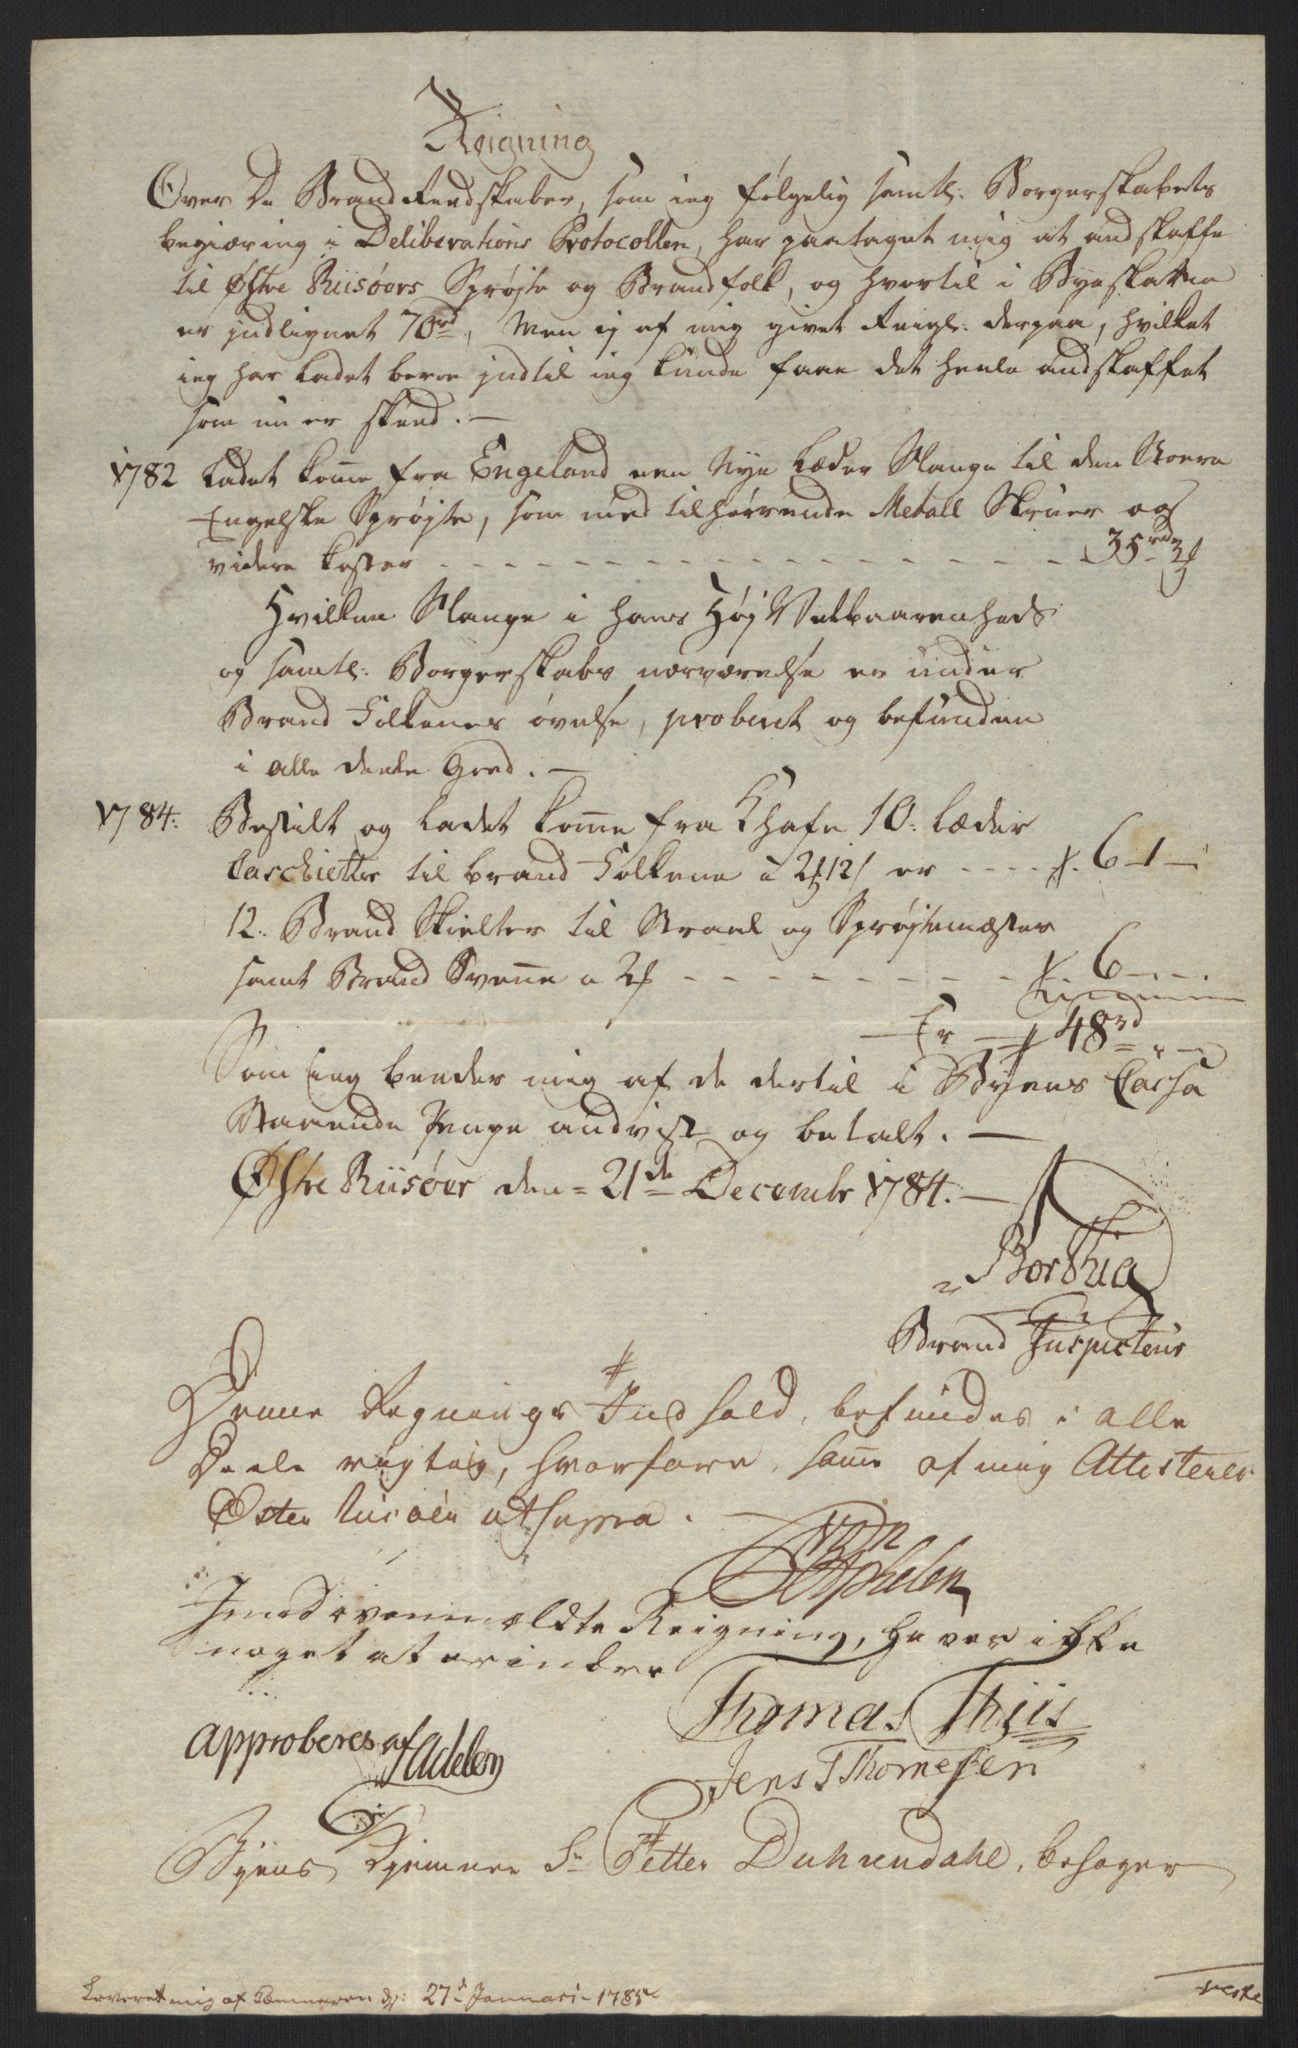 Reigning
Over De Brand Redskaber, som ieg følgelig samtl: Borgerskabets
begiæring i Deliberations Protocollen, har paataget mig at andskaffe
til Østre Riisøers Sprøjte og Brandfolk, og hvortil i Byeskatten
er jndlignet 70rd, Men ej af mig givet Reign: derpaa, hvilket
ieg har ladet beroe jndtil ieg kunde faae det heele andskaffet
som nu er skeed. —
1782 Ladet kom̅e fra Engeland een Nye Læder Slange til den Store
Engelske Sprøjte, som med tilhørende Metall Skruer og
videre koster - - - - - - 35rd 3
Hvilken Slange i hans Høj Velbaarenheds
og samtl: Borgerskabs nærværelse er under
Brand Folkenes øvelse, proberet og befunden
i alle deele Goed. —
1784. Bestilt og Ladet kom̅e fra Khafn 10: læder
Caschietter til brand Folkene a 2 12 er - - - - 6 - 1 -
12. Brand Skielter til Straal og Sprøjtemæster
samt Brand Svenne a 2 - - - - - - 6 - - -
Er — 48rd - -
Som ieg beeder mig af de dertil i Byens Cassa
Staaende Penge andvist og betalt. —
Østre Riisøer den 21de Decembr 1784. —
Brand Inspecteur
Denne Regnings Indhold, befindes i alle
Deele rigtig, hvorfore sam̅e af mig Attesteres
Øster Riisøer ut supra.
Imod ovenmeldte Reigning, haver ikke
noget at erindre
Thomas Thiis
Jens Thomesen
Approberes af Adelen
Byens Kjemner Sr Petter Duhrendahl, behager
Leveret mig af Kæmneren d: 27d Januari 1785